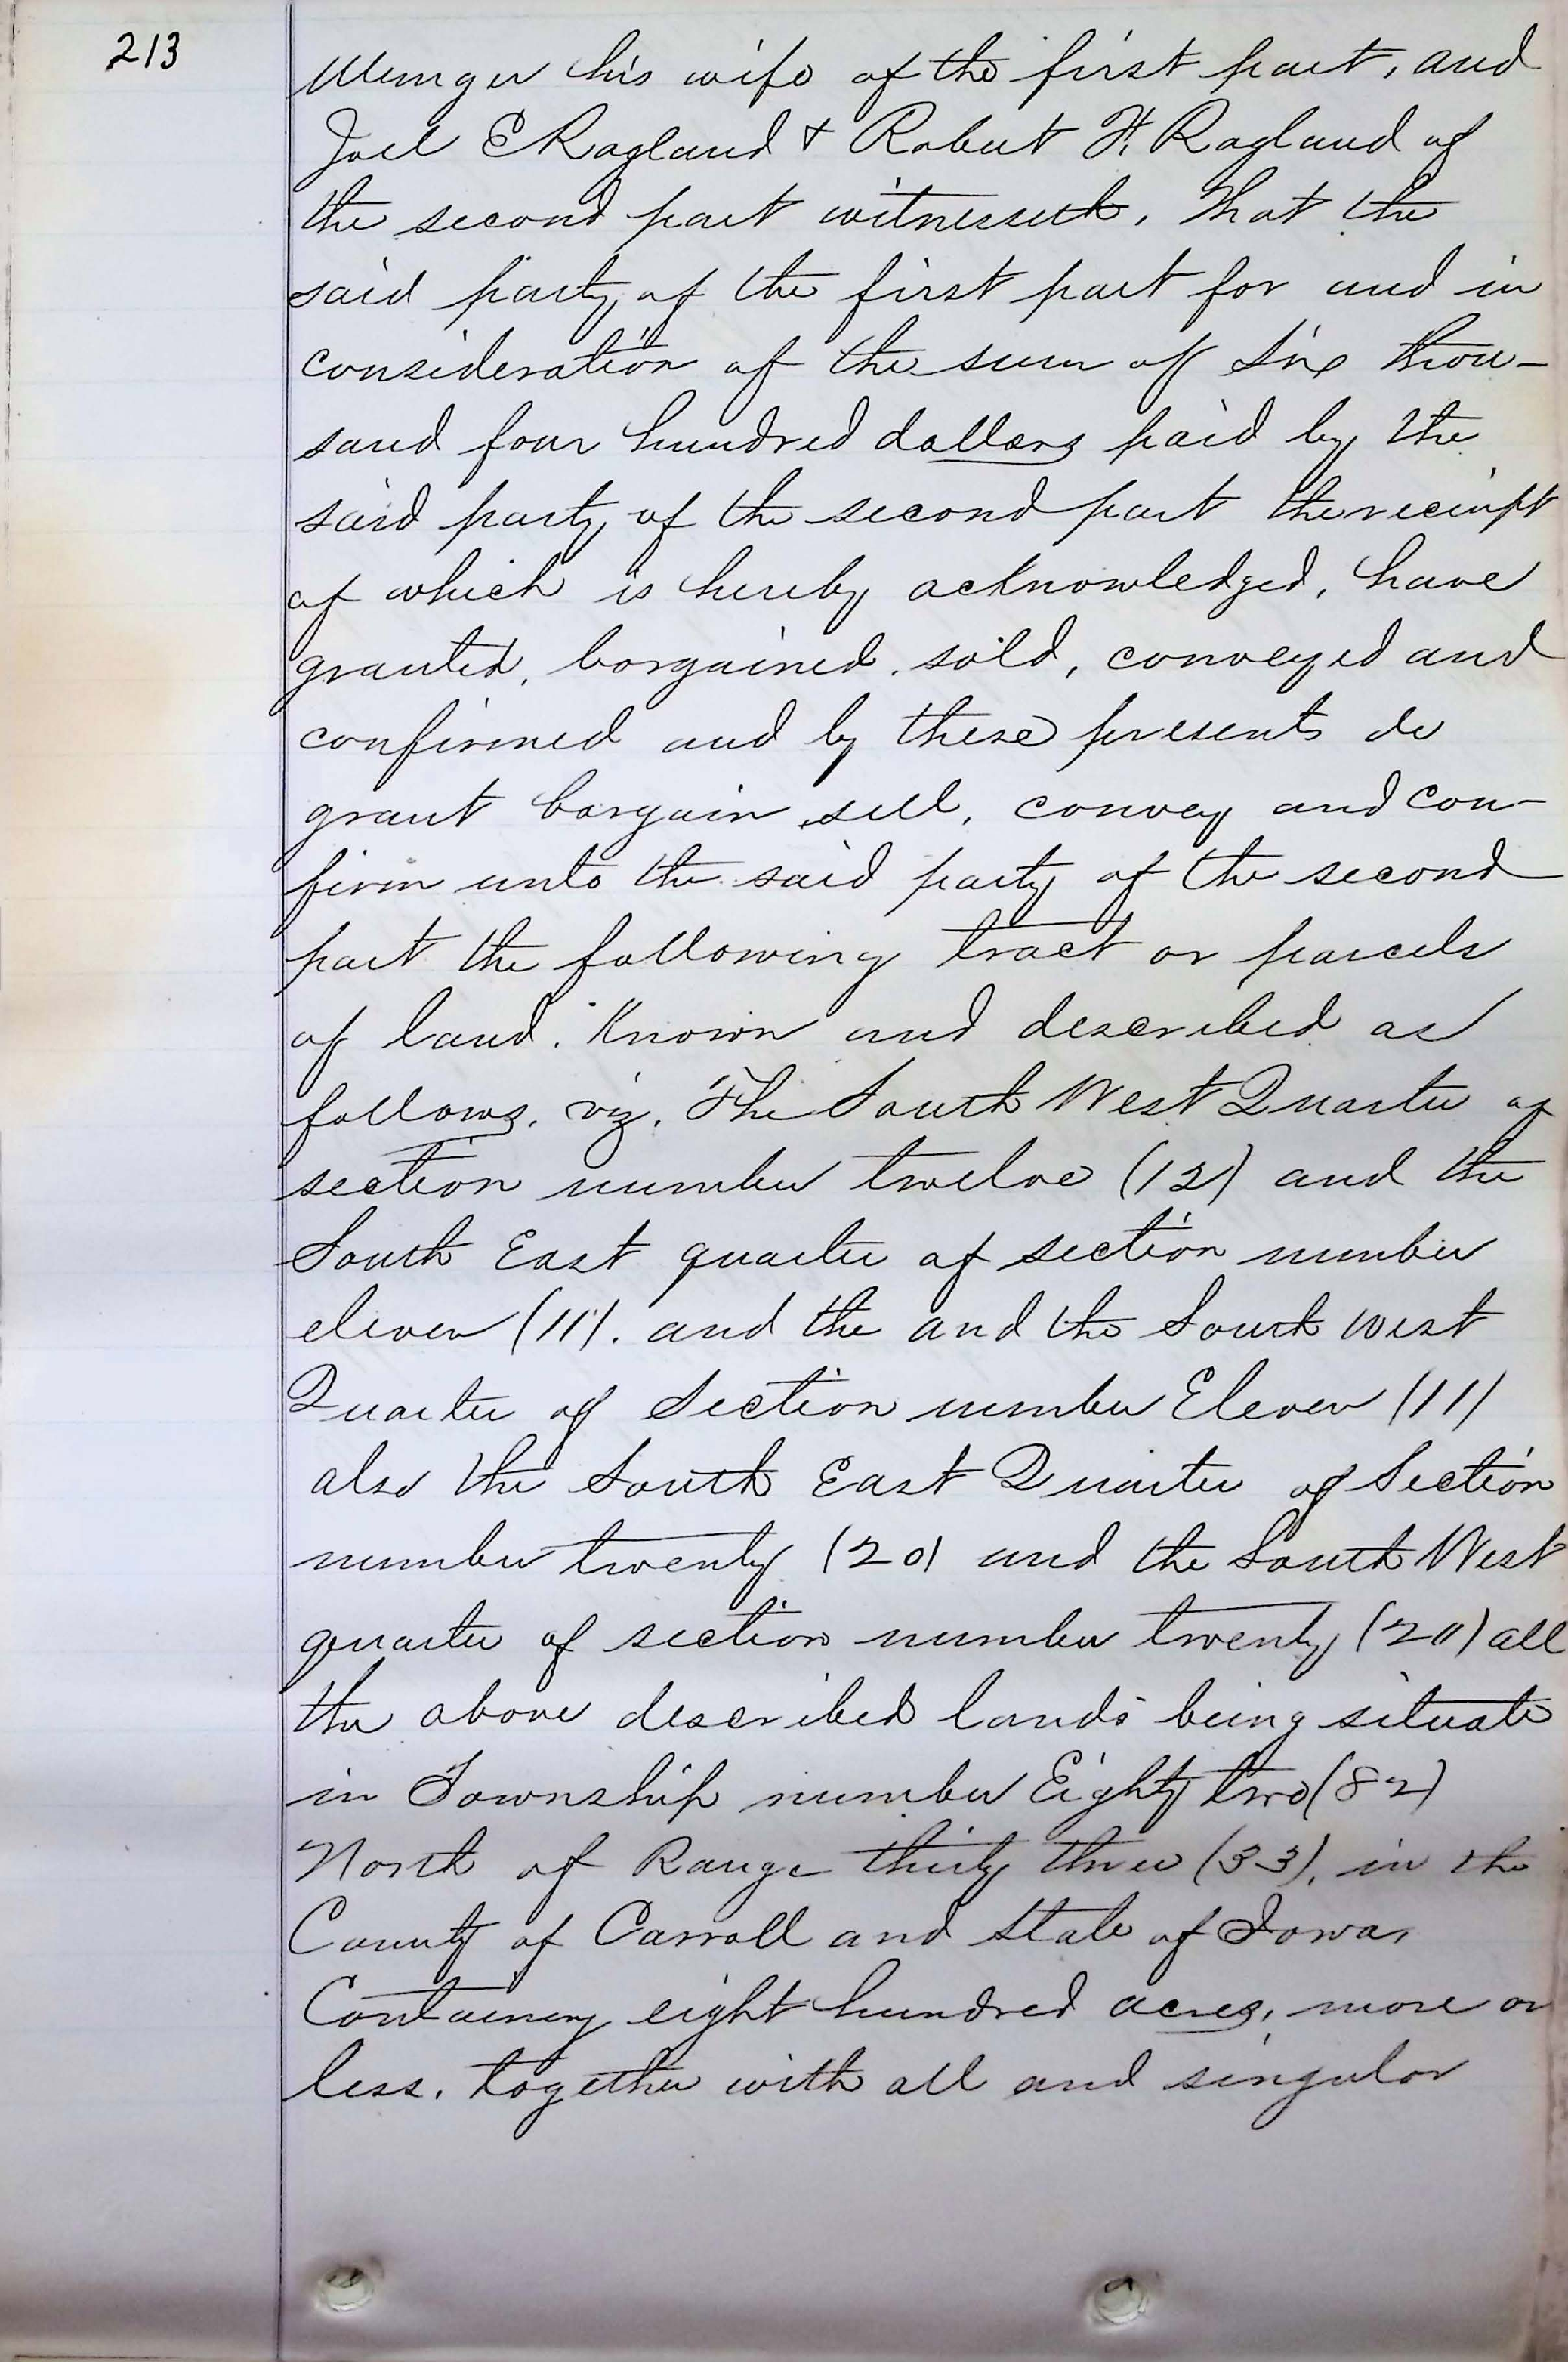 213
Munger his wife of the first part, and
Joel E Ragland & Robert H. Ragland of
the second part witnesseth, That the
said party of the first part for and in
consideration of the sum of Six thou-
sand four hundred dollars paid by the
said party of the second part the receipt
of which is hereby acknowledged, have
granted, bargained, sold, conveyed and
confirmed and by these presents do
grant bargain, sell, convey and con-
firm unto the said party of the second
part the following tract or parcels
of land. Known and described as
follows, viz. The South West Quarter of
section number twelve (12) and the
South East quarter of section number
eleven (11). and the and the South west
Quarter of Section number Eleven (11)
also the South East Quarter of Section
number twenty (20) and the South West
quarter of section number twenty (20) all
the above described lands being situate
in Township number Eighty two (82)
North of Range thirty three (33), in the
County of Carroll and State of Iowa,
Containing eight hundred acres, more or
less, together with all and singular